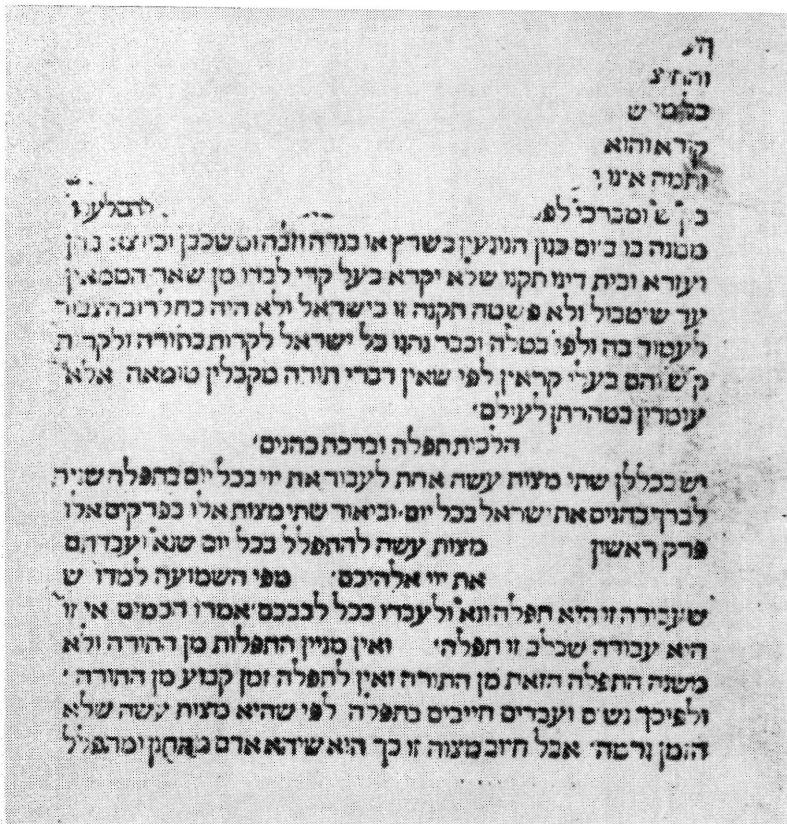 והחיצ
כל מי ש
קורא והוא
ותמה אינו
ומברכי לפ להבלע
ממנה בו ביום כגון הנוגעין בשרץ או בנדה וזבה ומשכבן וכיוצא בהן
ועזרא ובית דינו תקנו שלא יקרא בעל קרי לבדו מן שאר הטמאין
עד שיטבול ולא פשטה תקנה זו בישראל ולא היה כח לרוב הצבור
לעמוד בה ולפי בטלה וכבר נהגו כל ישראל לקרות בתורה ולקרות
ק ש והם בעלי קראין לפי שאין דברי תורה מקבלין טומאה אלא
עומדין בטהרתן לעולם
הלכות תפלה וברכת כהנים
יש בכללן שתי מצות עשה אחת לעבוד את יוי בכל יום בתפלה שניה
לברך כהנים את ישראל בכל יום וביאור שתי מצות אלו בפרקים אלו
פרק ראשון מצות עשה להתפלל בכל יום שנא ועבדתם
את יוי אלהיכם מפי השמועה למדו ש
שעבודה זו היא תפלה ונא ולעבדו בכל לבבכם אמרו חכמים אי זו
היא עבודה שבלב זו תפלה ואין מניין התפלות מן התורה ולא
משנה התפלה הזאת מן התורה ואין לתפלה זמן קבוע מן התורה
ולפיכך נשים ועבדים חייבים בתפלה לפי שהיא מצות עשה שלא
הזמן גרמה אבל חיוב מצוה זו כך היא שיהא אדם מתחנן ומתפלל